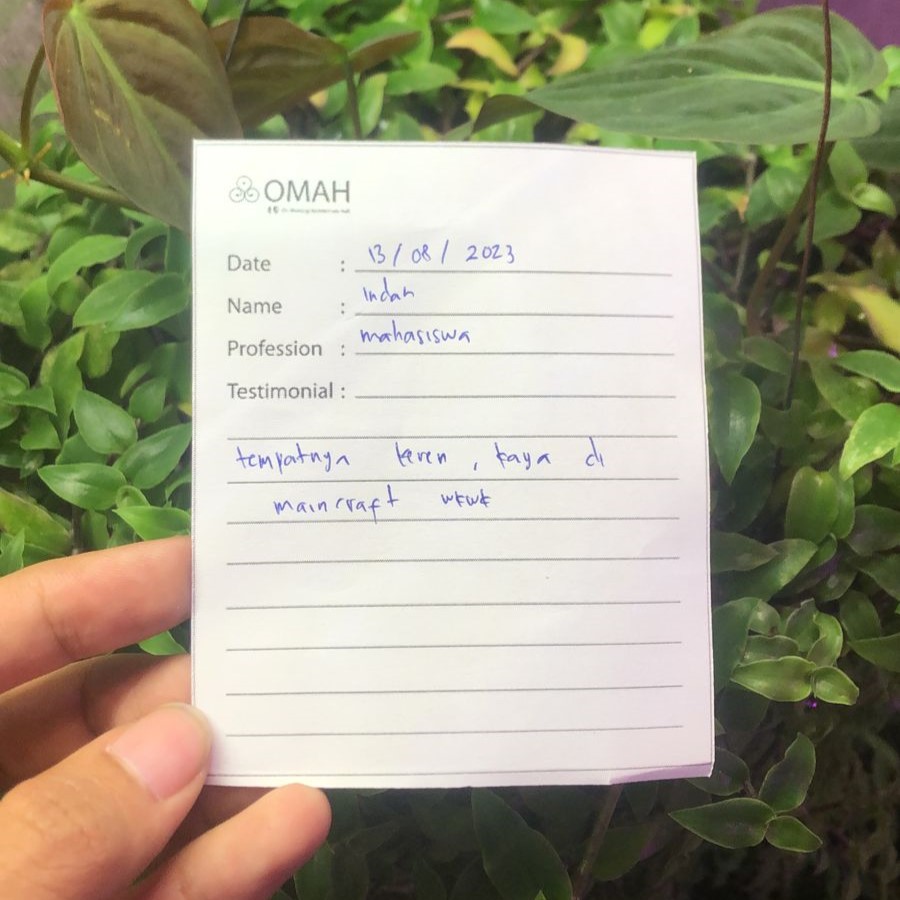 OMAH
Date : 13 / 08 / 2023
Name : Indah
Profession : mahasiswa
Testimonial :
tempatnya keren , kaya di
maincraft wkwk